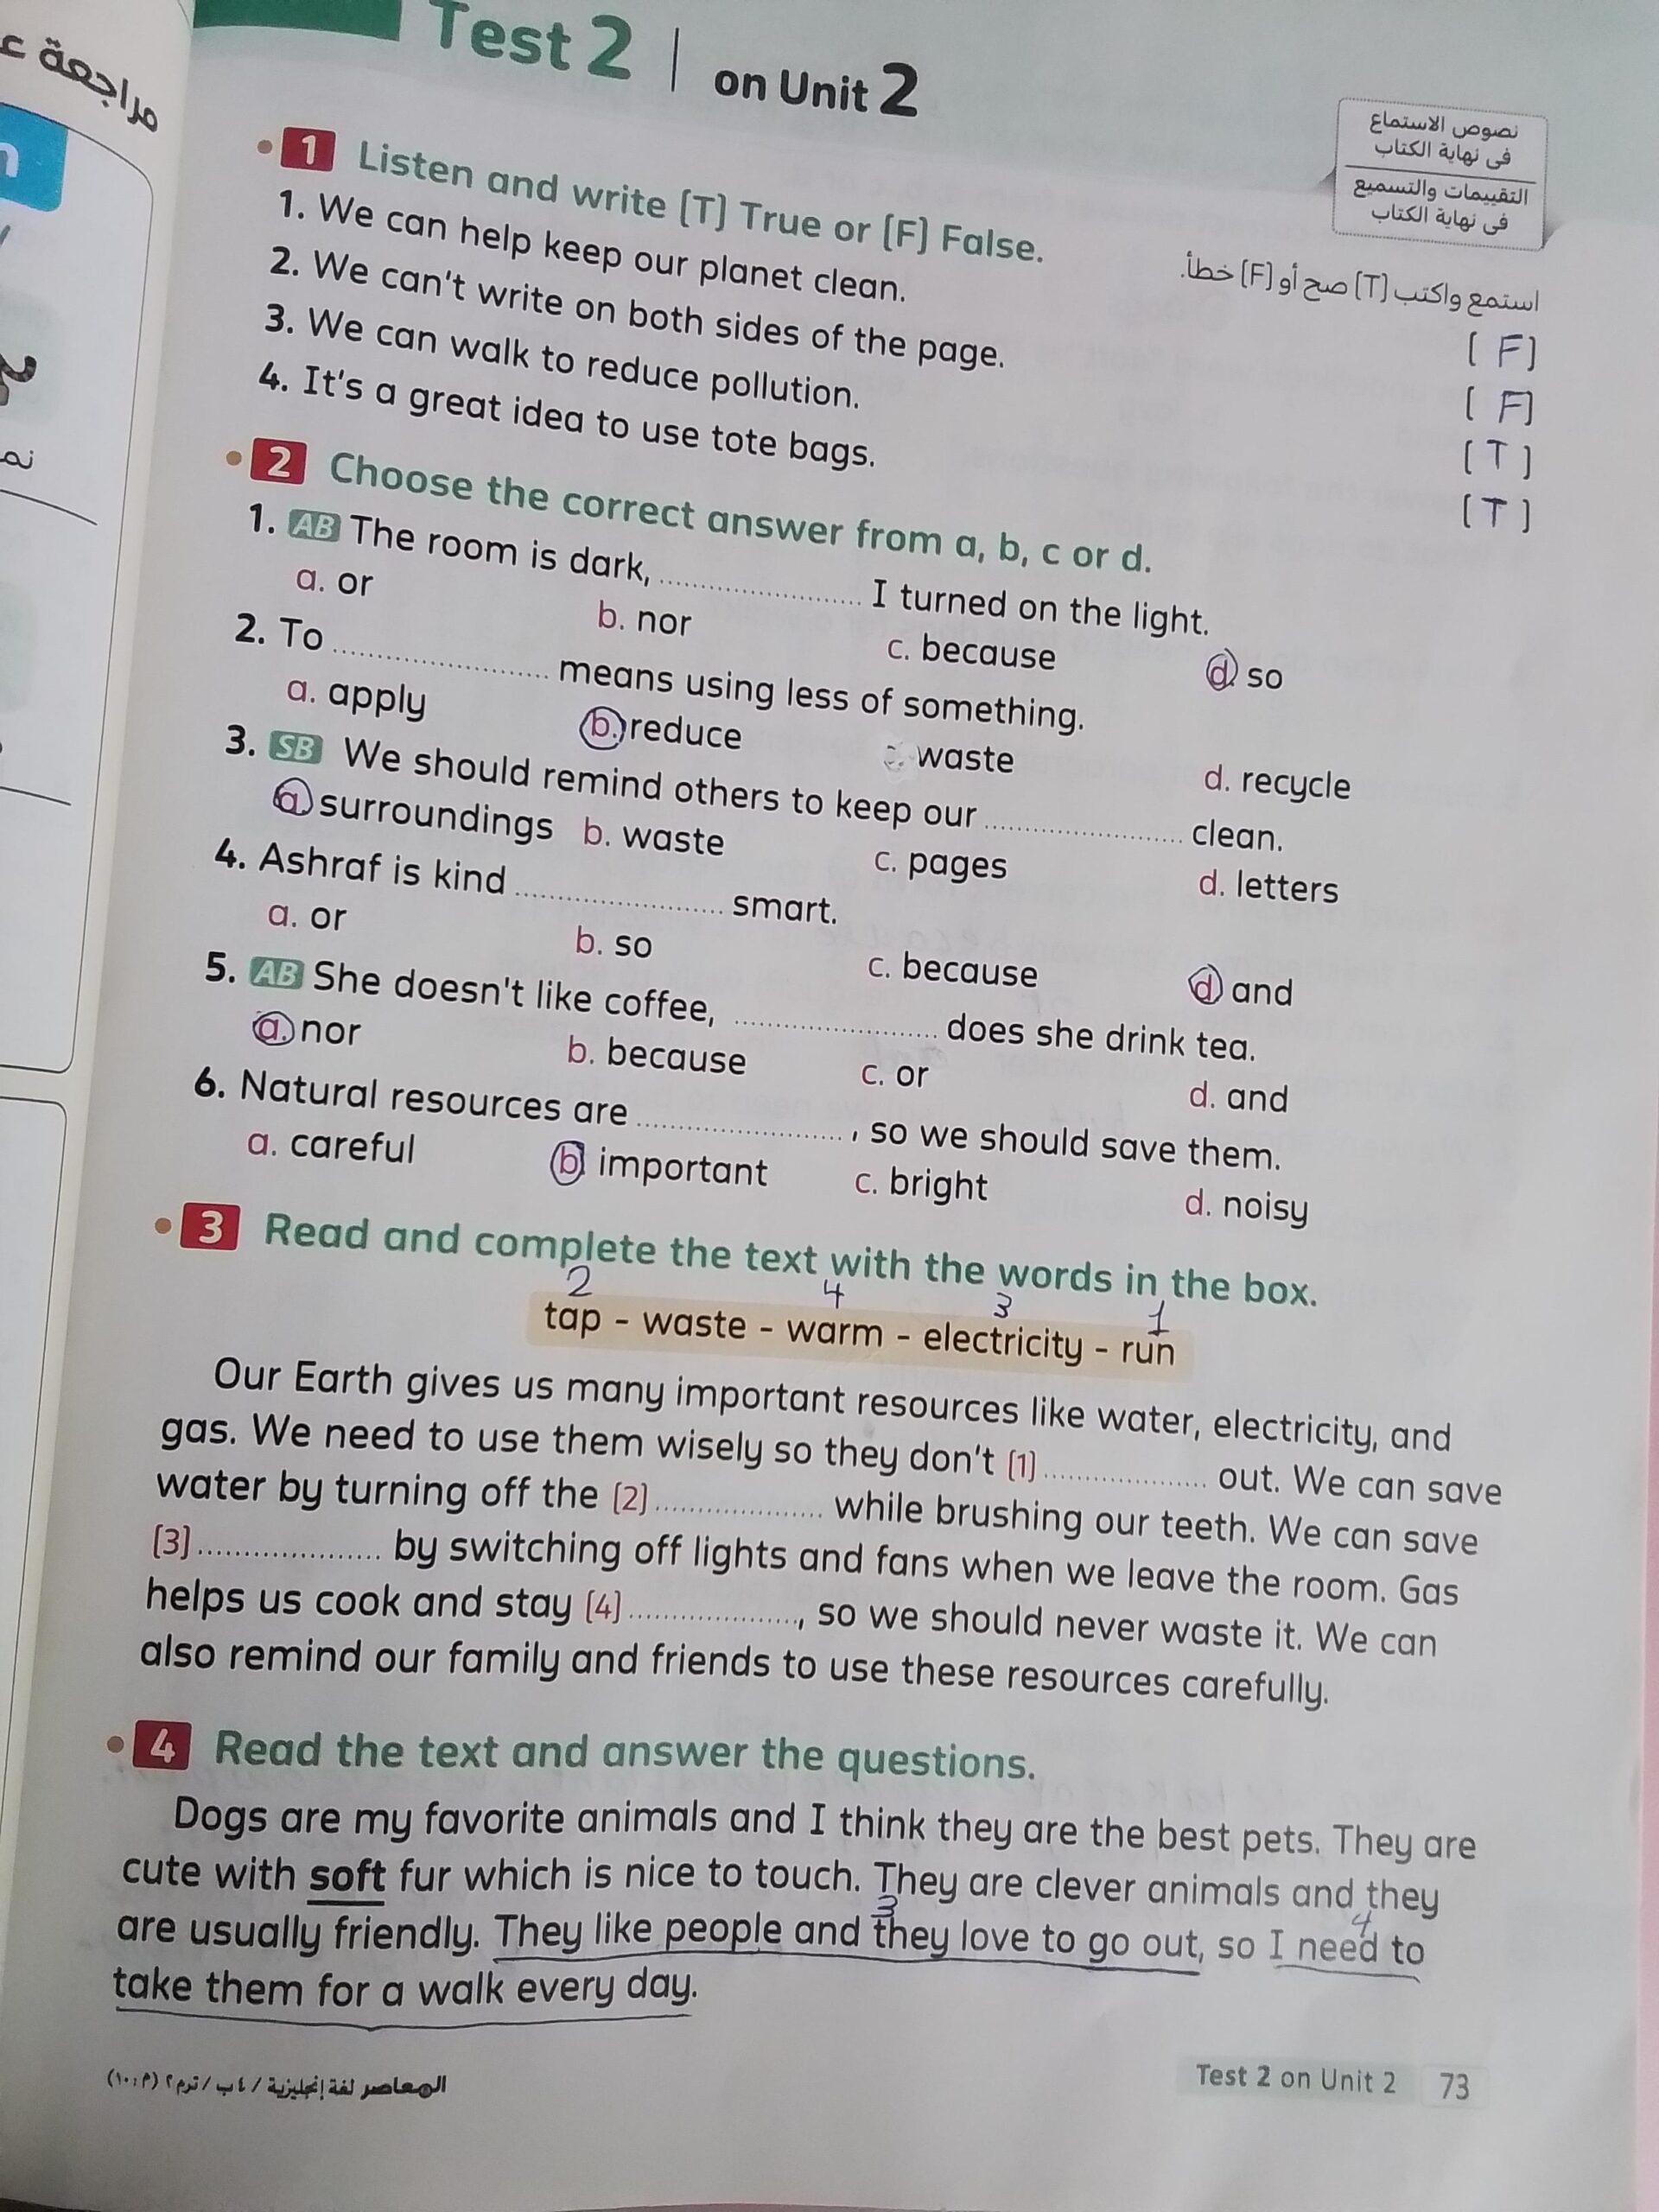 مراجعة
Test 2 | on Unit 2
نصوص الاستماع
فى نهاية الكتاب
التقييمات والتسميع
فى نهاية الكتاب
1 Listen and write [T] True or [F] False.
استمع واكتب [T] صح أو [F] خطأ.
1. We can help keep our planet clean. [ F ]
2. We can't write on both sides of the page. [ F ]
3. We can walk to reduce pollution. [ T ]
4. It's a great idea to use tote bags. [ T ]
2 Choose the correct answer from a, b, c or d.
1. AB The room is dark, .................... I turned on the light.
a. or b. nor c. because d. so
2. To .................... means using less of something.
a. apply b. reduce c. waste d. recycle
3. SB We should remind others to keep our .................... clean.
a. surroundings b. waste c. pages d. letters
4. Ashraf is kind .................... smart.
a. or b. so c. because d. and
5. AB She doesn't like coffee, .................... does she drink tea.
a. nor b. because c. or d. and
6. Natural resources are ...................., so we should save them.
a. careful b. important c. bright d. noisy
3 Read and complete the text with the words in the box.
2 4 3 1
tap - waste - warm - electricity - run
Our Earth gives us many important resources like water, electricity, and
gas. We need to use them wisely so they don't [1] .................... out. We can save
water by turning off the [2] .................... while brushing our teeth. We can save
[3] .................... by switching off lights and fans when we leave the room. Gas
helps us cook and stay [4] ...................., so we should never waste it. We can
also remind our family and friends to use these resources carefully.
4 Read the text and answer the questions.
Dogs are my favorite animals and I think they are the best pets. They are
cute with soft fur which is nice to touch. They are clever animals and they
3 4
are usually friendly. They like people and they love to go out, so I need to
take them for a walk every day.
المعاصر لغة إنجليزية / ٤ ب / ترم ٢ (م : ١٠)
Test 2 on Unit 2 73